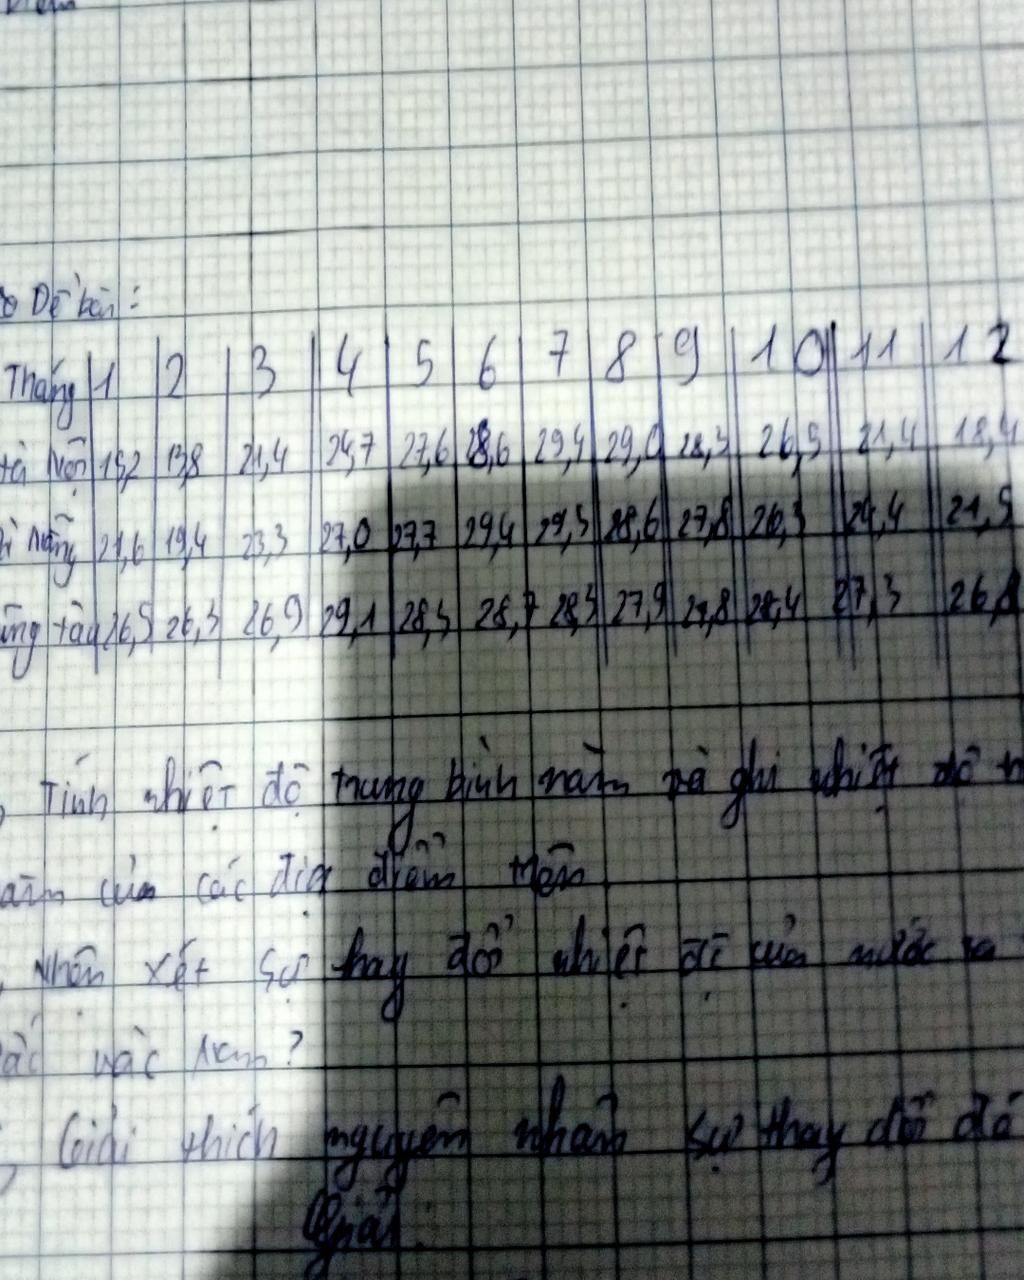 Đề bài:
Tháng 1 2 3 4 5 6 7 8 9 10 11 12
Nội 13,8 21,4 24,7 27,6 28,6 29,4 29,0 28,3 26,5 21,4 18,4
Nẵng 21,6 19,4 23,3 27,0 27,7 29,4 29,5 28,6 27,8 26,3 24,4 21,5
tàu 26,5 26,3 26,9 29,1 28,5 28,7 28,5 27,9 28,4 27,3
Tính nhiệt độ trung bình năm và ghi nhiệt độ
của các địa điểm trên
Nhận xét sự thay đổi nhiệt độ của nước ta
Nam?
Giải thích nguyên nhân sự thay đổi đó
Giải